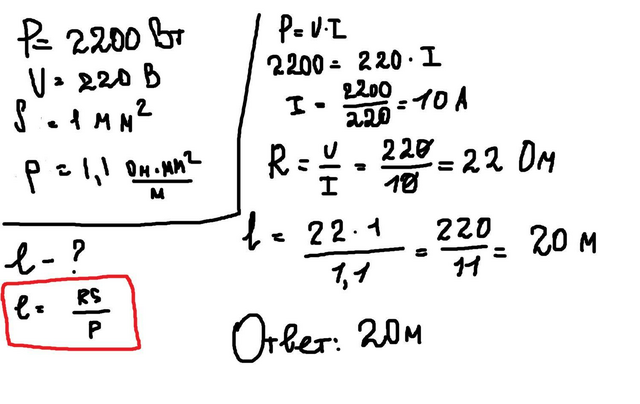 P= 2200 Вт
U= 220 В
S = 1 мм²
ρ = 1,1 Ом·мм²/м
l - ?
l= RS/ρ
P=U·I
2200= 220·I
I = 2200/220 = 10 А
R = U/I = 220/10 = 22 Ом
l = 22·1/1,1 = 220/11 = 20 м
Ответ: 20м